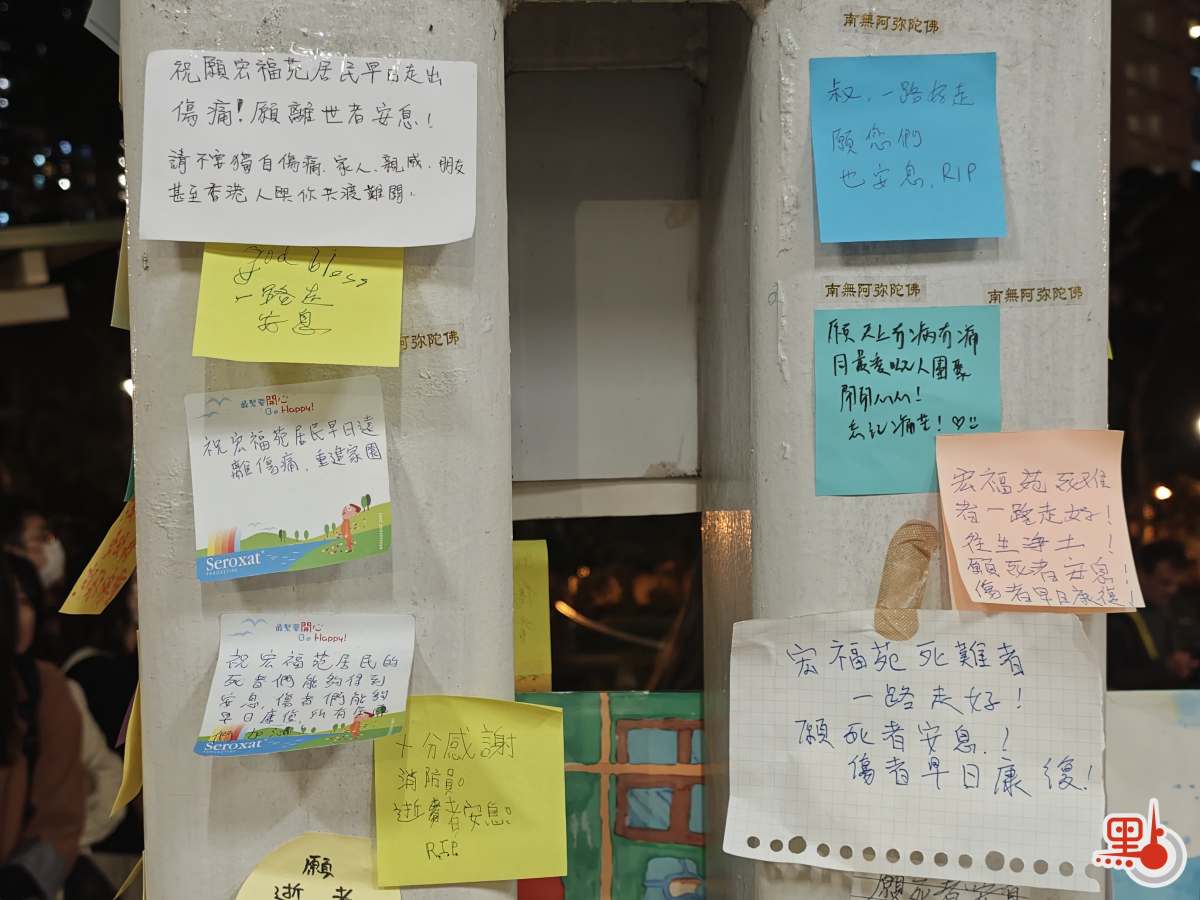 祝願宏福苑居民早日走出
傷痛!願離世者安息!
請不要獨自傷痛、家人、親戚、朋友
甚至香港人與你共渡難關。
god bless
一路走
安息
阿弥陀佛
最緊要開心
Be Happy!
祝宏福苑居民早日遠
離傷痛，重建家園
Seroxat
最緊要開心
Be Happy!
祝宏福苑居民的
死者們能夠得到
安息，傷者們能夠
早日康復，所有
Seroxat
十分感謝
消防員。
逝者安息。
RIP
願
逝者
南無阿弥陀佛
叔，一路好走
願您們
也安息，RIP
南無阿弥陀佛
南無阿弥陀佛
願天上冇病冇痛
同最愛嘅人團聚
開開心心!
忘記痛苦!♡
宏福苑死難
者一路走好!
往生淨土!
願死者安息!
傷者早日康復!
宏福苑死難者
一路走好!
願死者安息!
傷者早日康復!
願死者安息
點